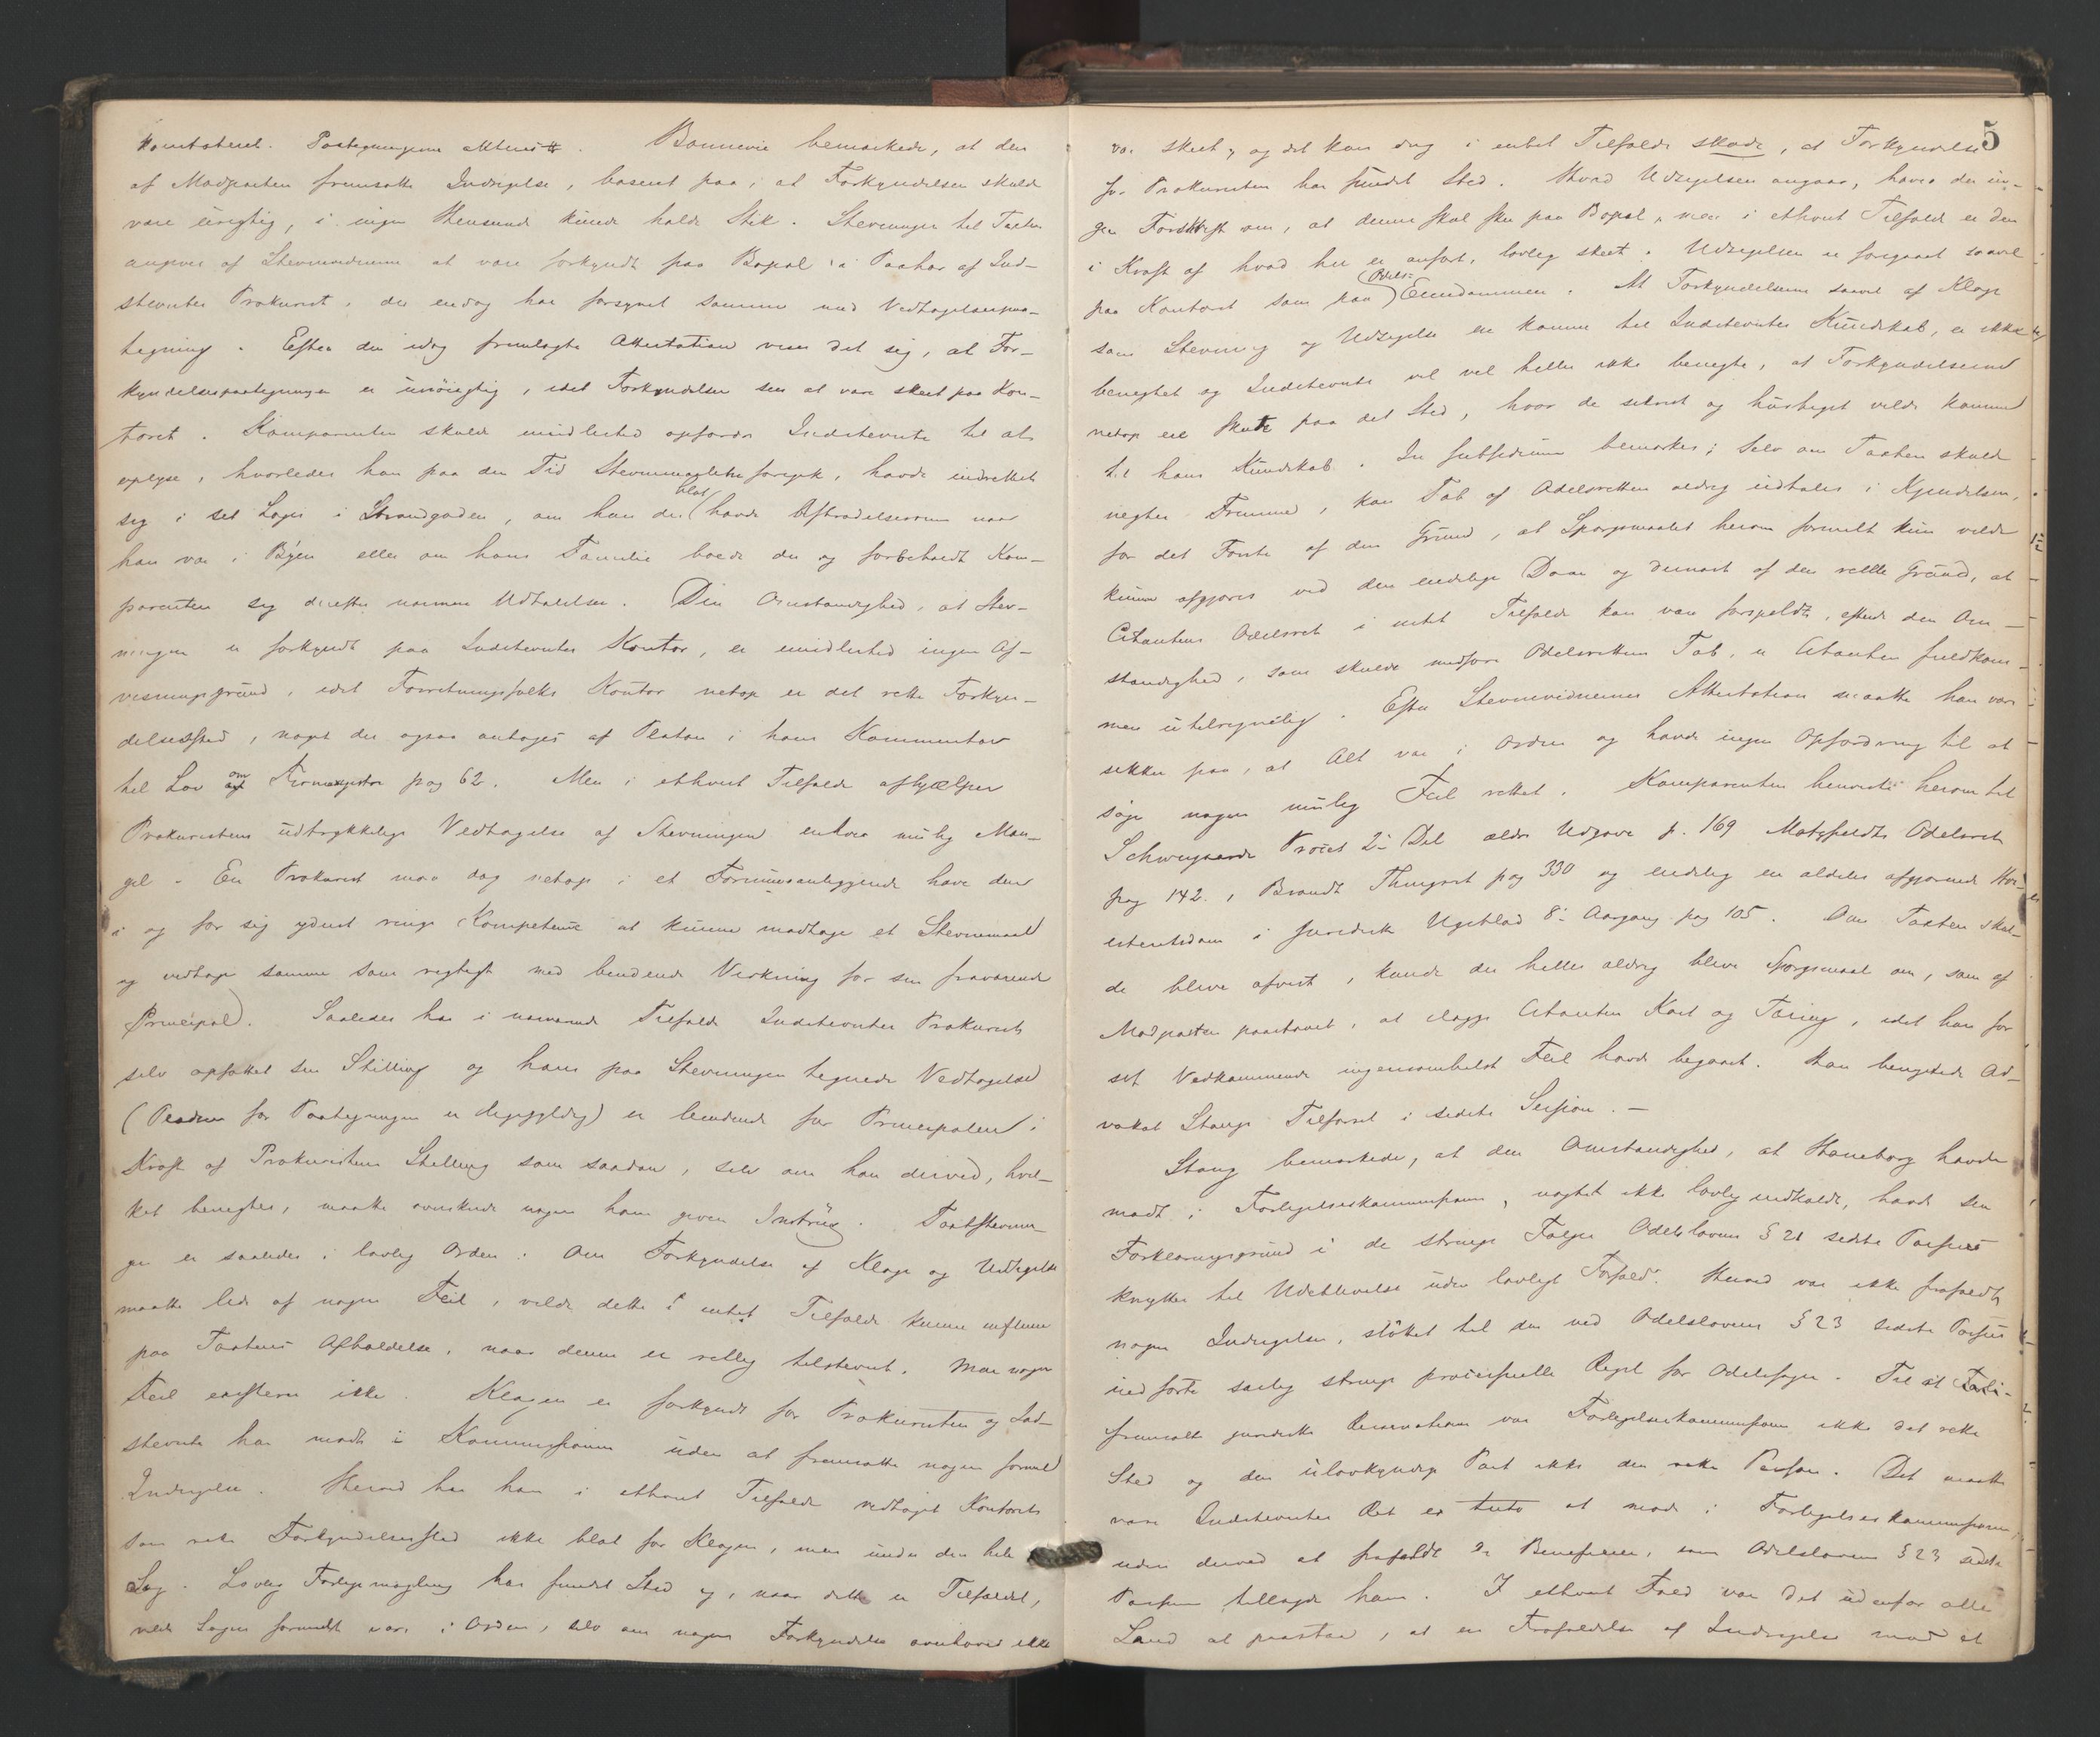 Kontoret. Paategningerne akteres. Bonnevie bemærkede, at den
af Modparten fremsatte Indsigelse, baseret paa, at Forkyndelsen skulde
være urigtig, i ingen Henseende kunde holde Stik. Stevningen til Taxten
angives af Stevnevidnerne at være forkyndt paa Bopæl i Paahør af Ind-
stevntes Prokurist, der endog har forsynet samme med Vedtagelsespaa-
tegning. Efter den idag fremlagte Attestation viser det sig, at For-
kyndelsespaategningen er unøiagtig, idet Forkyndelsen sees at være skeet paa Kon-
toret. Komparenten skulde imidlertid opfordre Indstevnte til at
oplyse, hvorledes han paa den Tid Stevnemaalet foregik, havde indrettet
sig i sit Logis i Strandgaden, om han der (blot havde Aftrædelsesrum naar
han var i Byen eller om hans Familie boede der og forbeholdt Kom-
parenten sig derefter nærmere Udtalelser. Den Omstændighed, at Stev-
ningen er forkyndt paa Indstevntes Kontor, er imidlertid ingen Af-
visningsgrund, idet Forretningsfolks Kontor netop er det rette Forkyn-
delsessted, noget der ogsaa antages af Platou i hans Kommentar
til Lov om Firmaregistre pag 62. Men i ethvert Tilfælde afhjælper
Prokuristens udtrykkelige Vedtagelse af Stevningen enhver mulig Man-
gel. En Prokurist maa dog netop i et Formuesanliggende have den
i og for sig yderst ringe Kompetence at kunne modtage et Stevnemaal
og vedtage samme som rigtigt med bindende Virkning for sin fraværende
Principal. Saaledes har i nærværende Tilfælde Indstevntes Prokurist
selv opfattet sin Stilling og hans paa Stevningen tegnede Vedtagelse
(Pladsen for Paategningen er ligegyldig) er bindende for Principalen i
Kraft af Prokuristens Stilling som saadan, selv om han derved, hvil-
ket benegtes, maatte overskride nogen ham given Instrux. Taxtstevnin-
gen er saaledes i lovlig Orden. Om Forkyndelse af Klage og Udsigelse
maatte lide af nogen Feil, vilde dette i intet Tilfælde kunne influere
paa Taxtens Afholdelse, naar denne er rettelig tilstevnt. Men nogen
Feil existerer ikke. Klagen er forkyndt for Prokuristen og Ind-
stevnte har mødt i Kommissionen uden at fremsætte nogen formel
Indsigelse. Herved har han i ethvert Tilfælde vedtaget Kontoret
som rette Forkyndelsessted ikke blot for Klagen, men under den hele
Sag. Lovlig Forligsmægling har fundet Sted og, naar dette er Tilfældet,
vilde Sagen formelt være i Orden, selv om nogen Forkyndelse overhovedet ikke
5
var skeet, og det kan dog i intet Tilfælde skade, at Forkyndelse
for Prokuristen har fundet Sted. Hvad Udsigelsen angaar, haves der in-
gen Forskrift om, at denne skal ske paa Bopæl, men i ethvert Tilfælde er den
i Kraft af hvad her er anført, lovlig skeet. Udsigelsen er foregaaet saavel
paa Kontoret som paa (Odels-) Eiendommen. At Forkyndelserne saavel af Klage
som Stevning og Udsigelse er komne til Indstevntes Kundskab, er ikke
benegtet og Indstevnte vil vel heller ikke benegte, at Forkyndelserne
netop ere skete paa det Sted, hvor de sikrest og hurtigst vilde komme
til hans Kundskab. In subsidium bemærkes: Selv om Taxten skulde
negtes Fremme, kan Tab af Odelsretten aldrig udtales i Kjendelsen,
for det Første af den Grund, at Spørgsmaalet herom formelt kun vilde
kunne afgjøres ved den endelige Dom og dernæst af den reelle Grund, at
Citantens Odelsret i intet Tilfælde kan være forspildt, efterdi den Om-
stændighed, som skulde medføre Odelsrettens Tab, er Citanten fuldkom-
men utilregnelig. Efter Stevnevidnernes Attestation maatte han være
sikker paa, at Alt var i Orden og havde ingen Opfordring til at
søge nogen mulig Feil rettet. Komparenten henviste herom til
Schweigaards Proces 2den Del ældre Udgave p. 169 Motzfeldts Odelsret
pag 142, Brandt Thingsret pag 330 og endelig en aldeles afgjørende Høi-
esteretsdom i juridisk Ugeblad 8de Aargang pag 105. Om Taxten skul-
de blive afvist, kunde der heller aldrig blive Spørgsmaal om, som af
Modparten paastaaet, at ilægge Citanten Kost og Tæring, idet han for
sit Vedkommende ingensomhelst Feil havde begaaet. Han benegtede Ad-
vokat Stangs Tilførsel i sidste Session. —
Stang bemærkede, at den Omstændighed, at Haneborg havde
mødt i Forligelseskommissionen, uagtet ikke lovlig indkaldt, havde sin
Forklaringsgrund i de strenge Følger Odelslovens § 21 sidste Passus
knytter til Udeblivelse uden lovligt Forfald. Herved var ikke frafaldt
nogen Indsigelse, støttet til den ved Odelslovens § 23 sidste Passus
indførte særlig strenge processuelle Regel for Odelssager. Til at
fremsatte juridiske Reservationer var Forligelseskommissionen ikke det rette
Sted og den ulovkyndige Part ikke den rette Person. Det maatte
være Indstevntes Ret ex tuto at møde i Forligelseskommissionen,
uden derved at frafalde de Beneficier, som Odelslovens § 23 sidste
Passus tillagde ham. I ethvert Fald var det udenfor alle
Land at paastaa, at en Frafaldelse af Indsigelse mod et